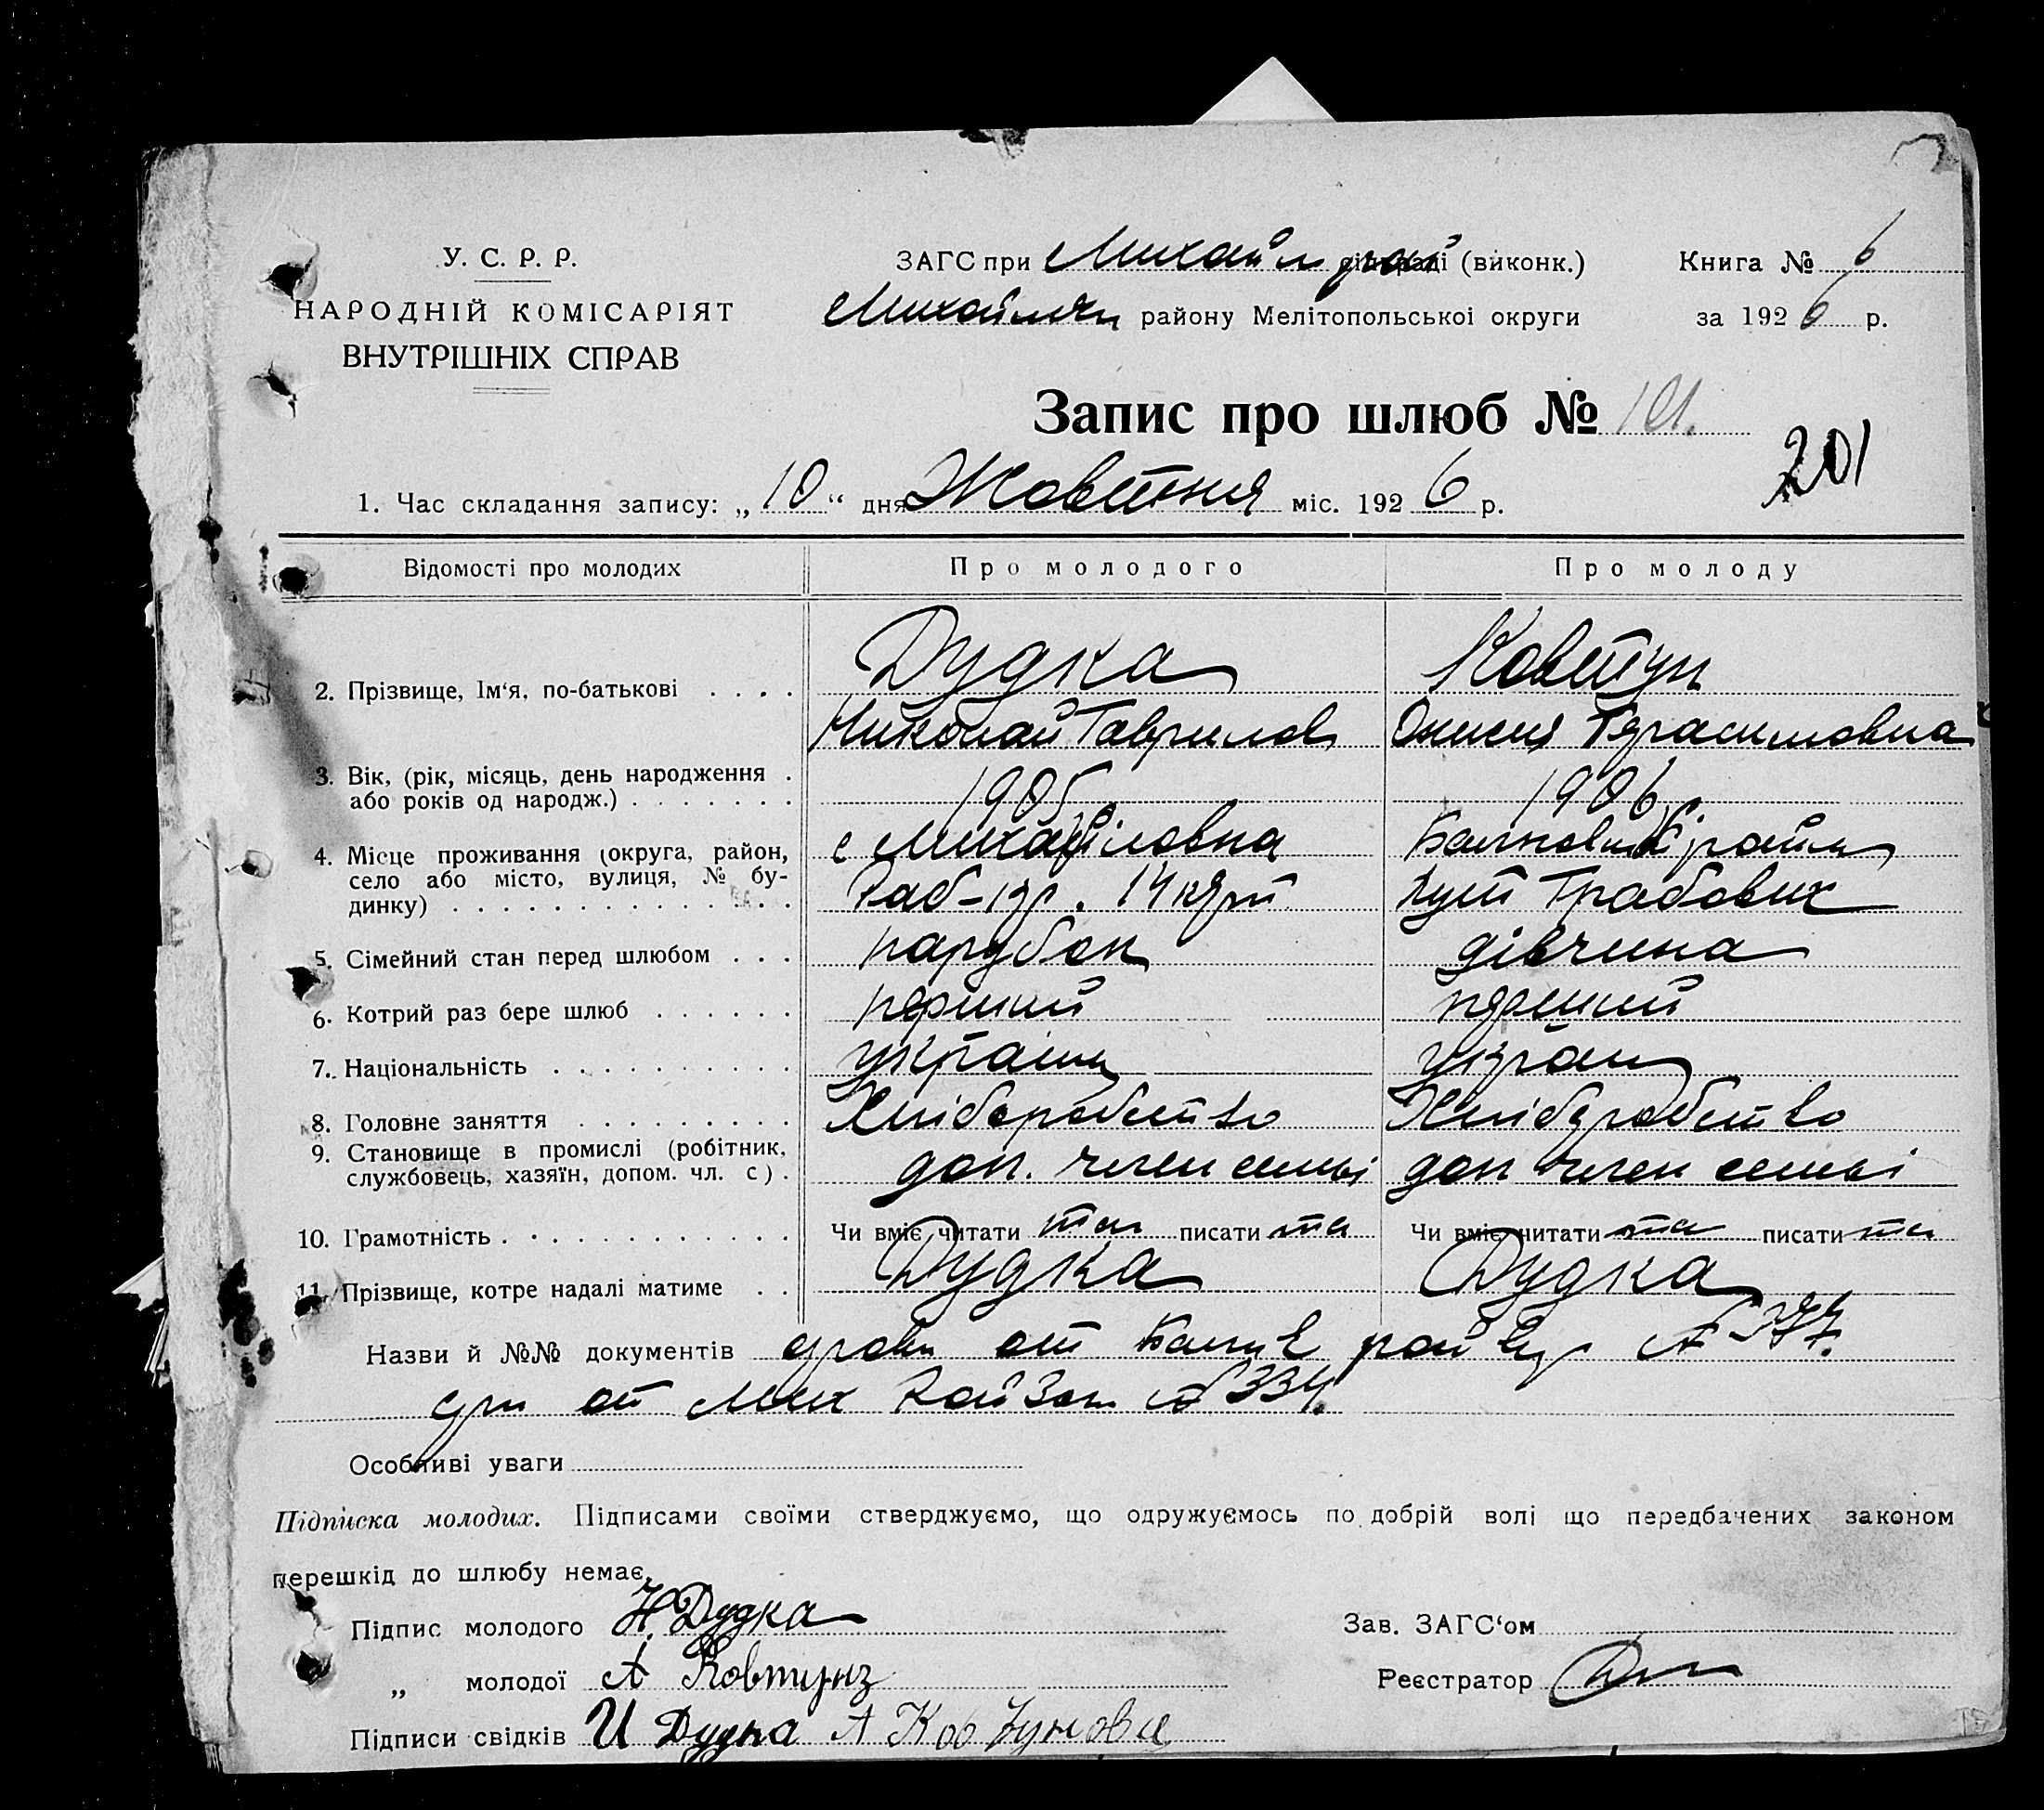 У. С. Р. Р.
НАРОДНІЙ КОМІСАРІЯТ
ВНУТРІШНІХ СПРАВ
ЗАГС при Михайл рай (виконк.)
районy Мелітопольської округи
Книга № 6
за 1926 р.
Запис про шлюб № 101.
201
1. Час складання запису: „10“ дня Жовтня міс. 1926 р.
Відомості про молодих Про молодого Про молоду
2. Прізвище, Ім‘я, по-батькові . . . . Дудка Ковтун
Николай Гаврилов Герасимовна
3. Вік, (рік, місяць, день народження . 1905 1906
або років од народж.) . . . . . . .
4. Місце проживання (округа, район, с Михайловка району
село або місто, вулиця, № бу- 14 Хут Грабових
динку) . . . . . . . . . . . . . .
5. Сімейний стан перед шлюбом . . . парубок дівчина
6. Котрий раз бере шлюб . . . . . . перший перший
7. Національність . . . . . . . . . . україн україн
8. Головне заняття . . . . . . . . . Хліборобство Хліборобство
9. Становище в промислі (робітник, доп. член семьі доп член семьі
службовець, хазяїн, допом. чл. с) .
10. Грамотність . . . . . . . . . . . . Чи вміє читати так писати так Чи вміє читати так писати так
11. Прізвище, котре надалі матиме . . Дудка Дудка
Назви й №№ документів от № 377.
от Мих № 334.
Особливі уваги
Підписка молодих. Підписами своїми стверджуємо, що одружуємось по добрій волі що передбачених законом
перешкід до шлюбу немає.
Підпис молодого Н. Дудка
„ молодої А Ковтунъ
Підписи свідків И Дудка А Ковтунова
Зав. ЗАГС‘ом
Реєстратор